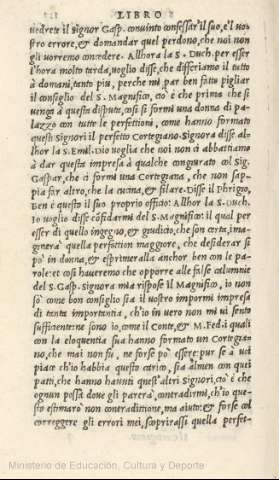 LIBRO
vedrete il signor Gasp. convinto confessar il suo, e'l vo
stro errore, & domandar quel perdono, che noi non
gli vorremo concedere. Allhora la S. Duch. per esser
l'hora molto tarda, voglio disse, che differiamo il tutto
à domani, tanto piu, perche mi par ben fatto pigliar
il consiglio del S. Magnifico, cio è che prima che si
venga à questa disputa, cosi si formi una donna di pa-
lazzo con tutte le perfettioni, come hanno formato
questi Signori il perfetto Cortegiano. Signora disse al-
lhor la S. Emil. Dio voglia che noi non ci abbattiamo
à dar questa impresa à qualche congiurato col Sig.
Gaspar, che ci formi una Cortegiana, che non sap-
pia far altro, che la cucina, & filare. Disse il Phrigio,
Ben è questo il suo proprio officio: Allhor la S. Duch.
Io voglio disse cōfidarmi del S. Magnifico: il qual per
esser di quello ingegno, & giudicio, che son certa, ima-
ginerà quella perfettion maggiore, che desiderar si
po' in donna, & esprimerà anchor ben con le pa-
role: et cosi haveremo che opporre alle false calumnie
del S. Gasp. Signora mia rispose il Magnifico, io non
so come bon consiglio sia il vostro impormi impresa
di tanta importantia, ch'io in vero non mi vi sento
sufficiente: ne sono io, come il Conte, & M. Fed. i quali
con la eloquentia sua hanno formato un Cortegia-
no, che mai non fu, ne forse po' essere: pur se à voi
piace ch'io habbia questo carico, sia almen con quei
patti, che hanno havuti quest'altri Signori, cio è che
ognun possa dove gli parerà, contradirmi, ch'io que-
sto estimarò non contradittione, ma aiuto: & forse col
correggere gli errori mei, scoprirassi quella perfet-
Ministerio de Educación, Cultura y Deporte